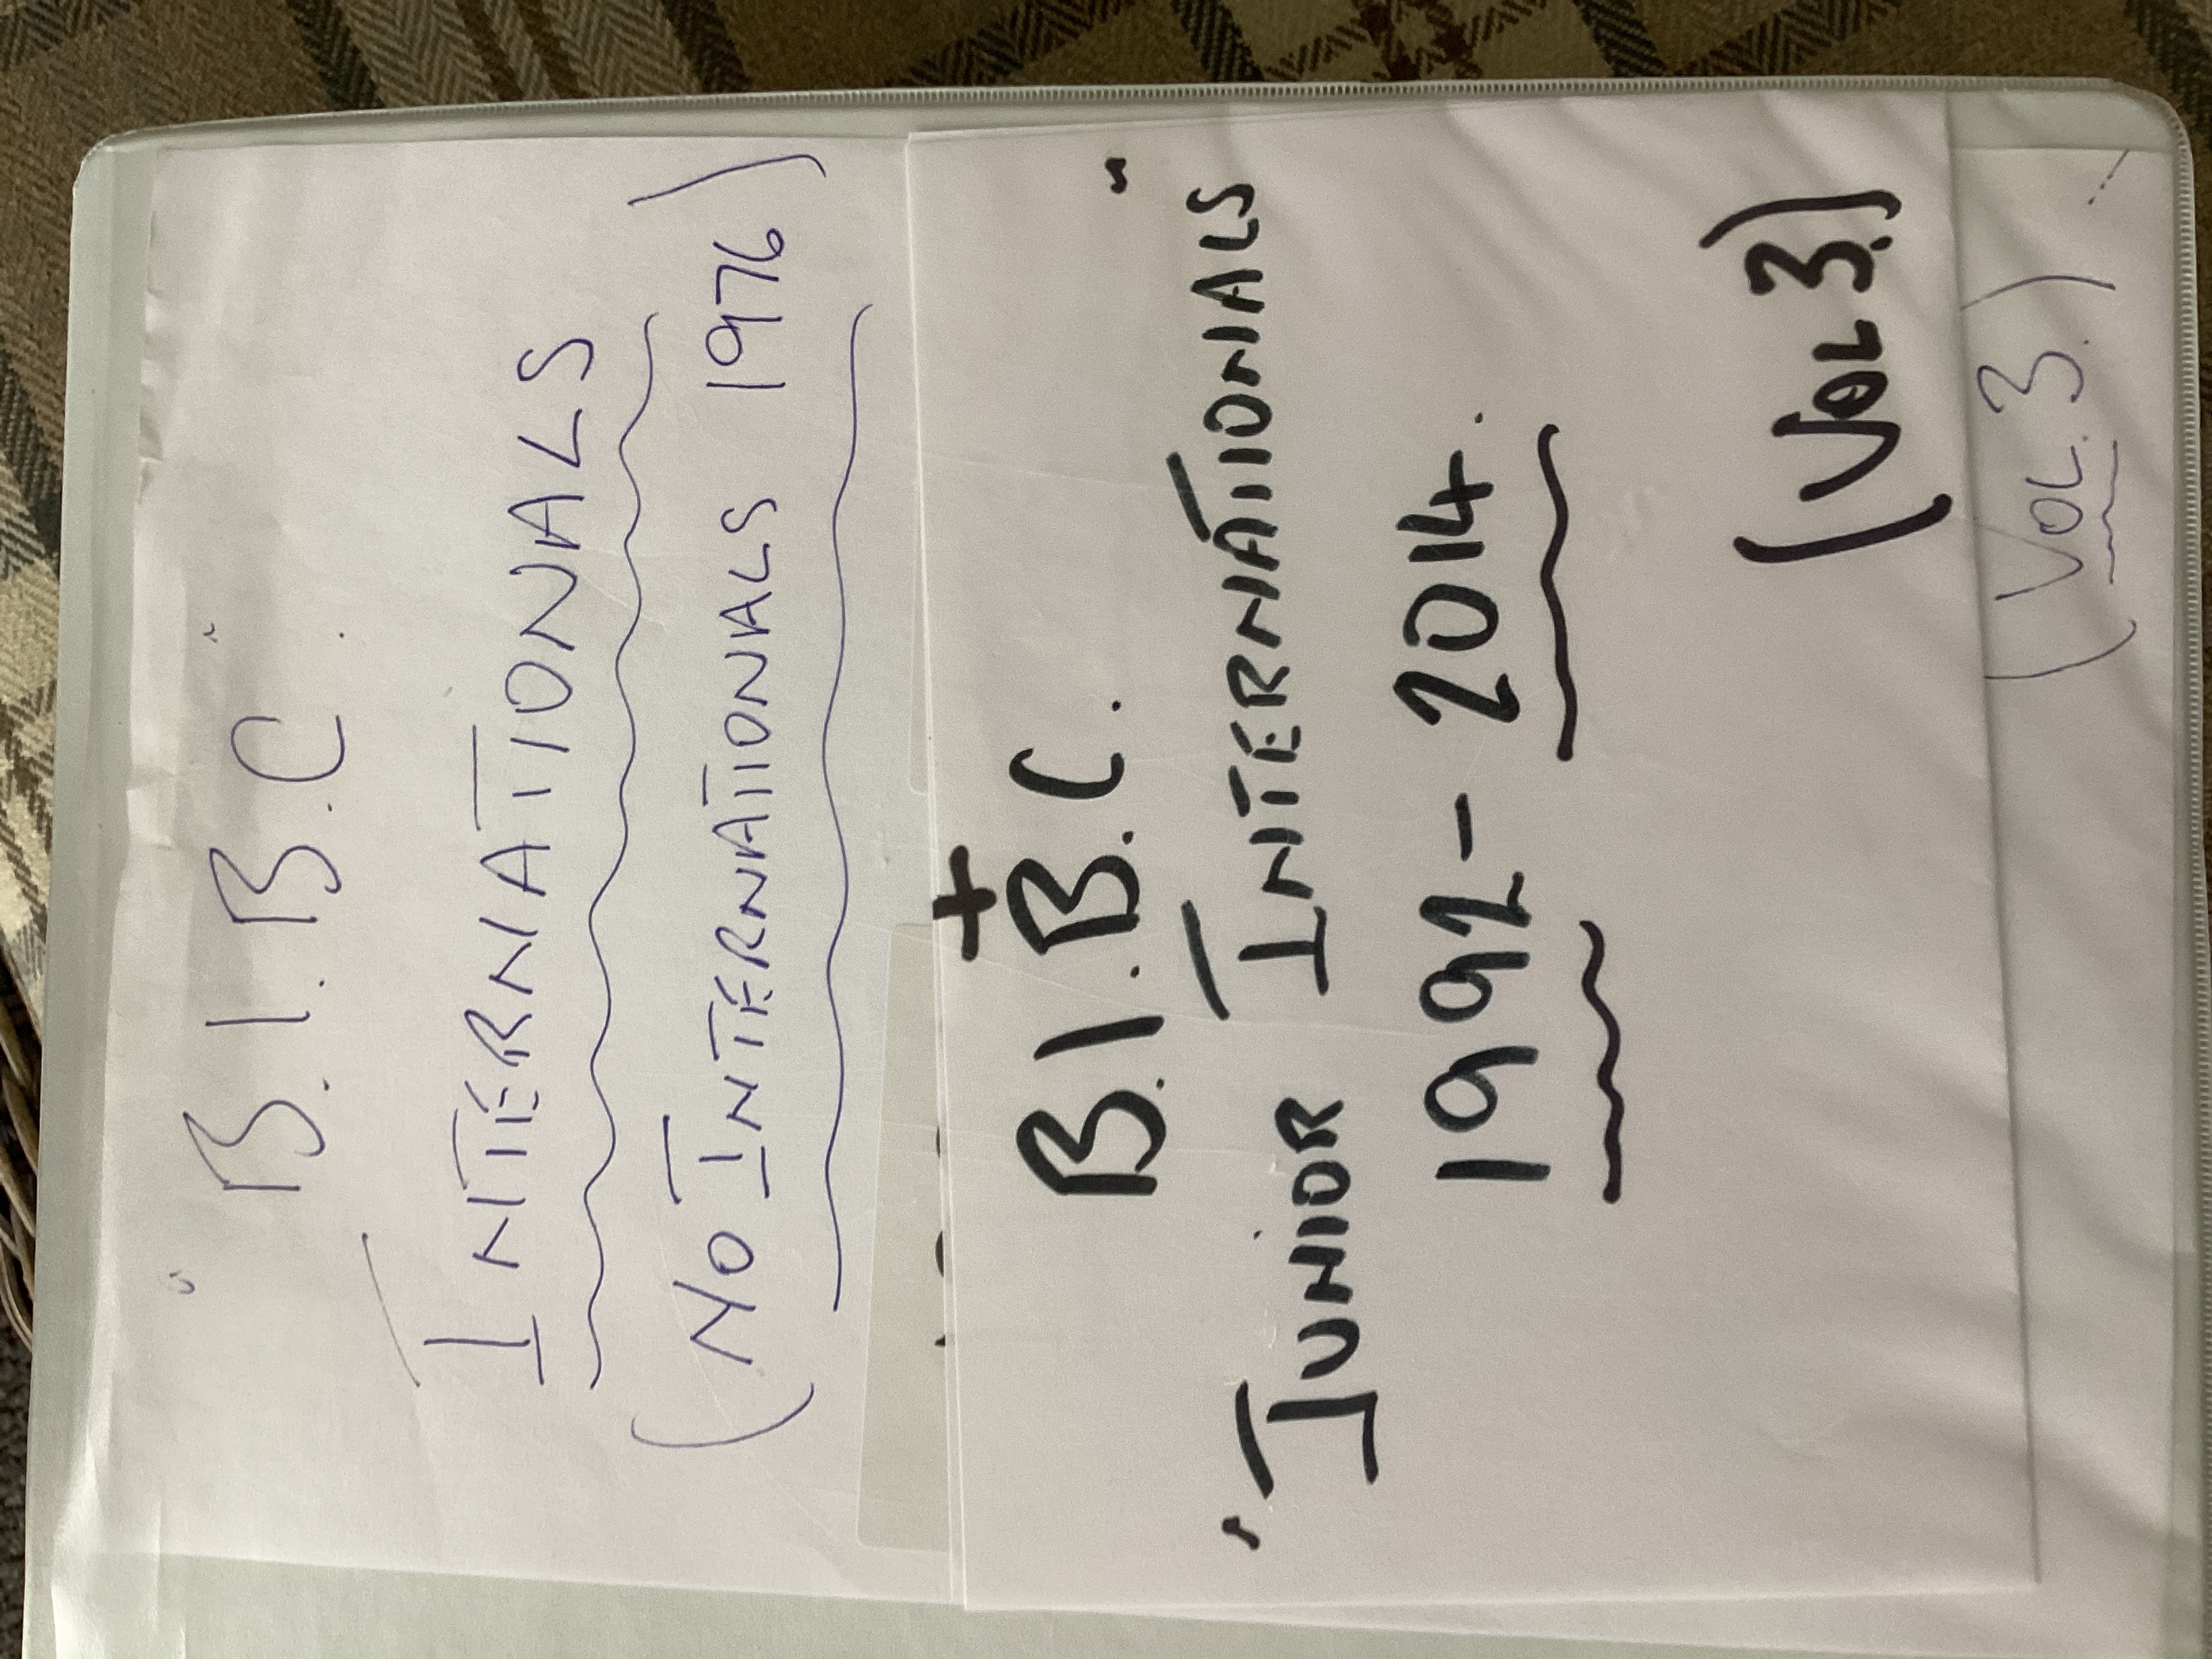 " B.I.B.C. "
INTERNATIONALS
(NO INTERNATIONALS 1976)
+
B.I.B.C. "
" JUNIOR INTERNATIONALS
1992 - 2014.
(VOL 3.)
(VOL. 3.)